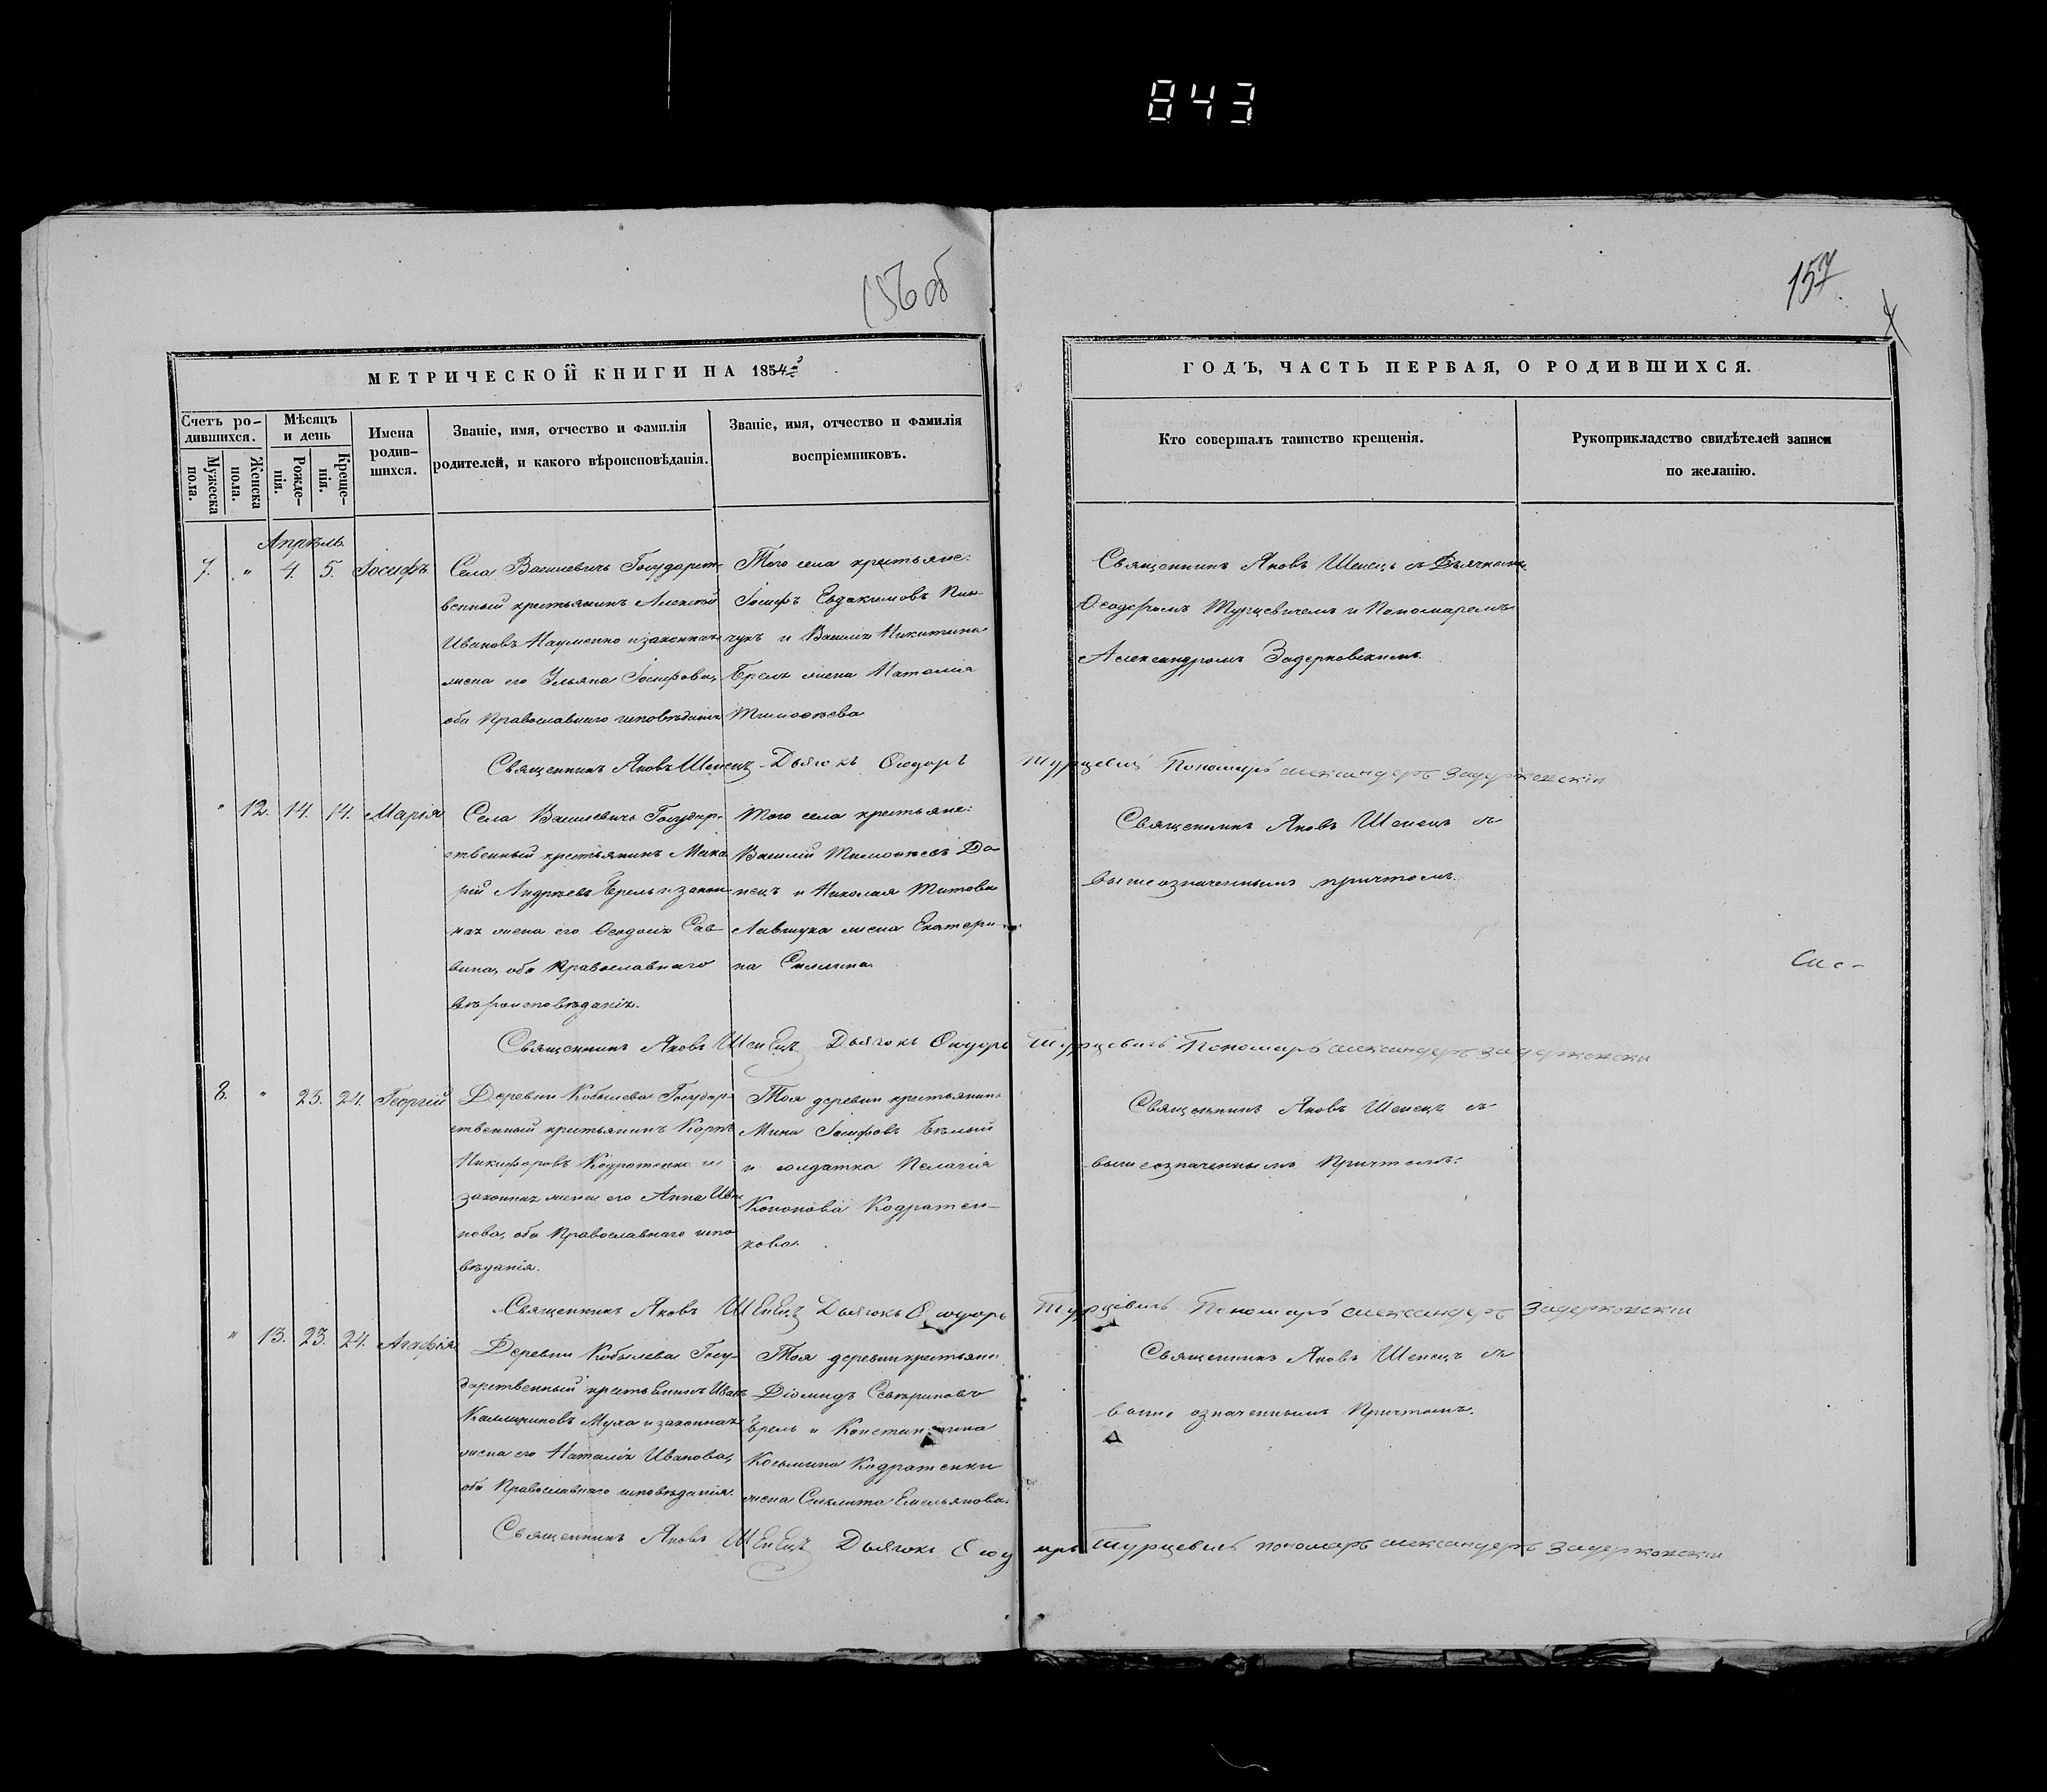 843
156 об
157
МЕТРИЧЕСКОЙ КНИГИ НА 1854
ГОДЪ, ЧАСТЬ ПЕРВАЯ, О РОДИВШИХСЯ.
Счетъ ро-
дившихся.
Мужеска
пола.
Женска
пола.
Мѣсяцъ
и день
Рожде-
нія.
Креще-
нія.
Имена
родив-
шихся.
Званіе, имя, отчество и фамилія
родителей, и какого вѣроисповѣданія.
Званіе, имя, отчество и фамилія
воспріемниковъ.
Кто совершалъ таинство крещенія.
Рукоприкладство свидѣтелей записи
по желанію.
Апрѣль
7. " 4. 5. Іосифъ
Села Василевичь Государст-
венный крестьянинъ Алексѣй
Ивановъ Науменко и законная
жена его Ульяна Іосифова,
оба Православнаго исповѣданія
Того села крестьяне:
Іосифъ Евдокимовъ Пин-
чукъ и Василія Никитина
Брель жена Наталія
Тимоѳеева
Священникъ Яковъ Шепецъ съ Дьячкомъ
Ѳеодоромъ Турцевичемъ и Пономаремъ
Александромъ Задерковскимъ.
Священникъ Яковъ Шепецъ Дьячокъ Ѳеодоръ Турцевичъ Пономаръ александеръ Задерковскіи
" 12. 14. 14. Марія
Села Василевичь Государ-
ственный крестьянинъ Мака
рій Андреевъ Брель и закон-
ная жена его Ѳеодосія Сав-
вина, оба Православнаго
вѣроисповѣданія.
Того села крестьяне:
Василій Тимоѳеевъ До
нецъ и Николая Титова
Левшука жена Екатери-
на
Священникъ Яковъ Шепецъ съ
вышеозначеннымъ причтомъ.
Священникъ Яковъ Шепецъ Дьячокъ Ѳеодоръ Турцевичъ Пономаръ александеръ Задерковски
8. " 23. 24. Георгій
Деревни Кобылева Государ-
ственный крестьянинъ
Никифоровъ Кодратенко и
законная жена его Анна Ива
нова, оба Православнаго испо
вѣданія.
Тоя деревни крестьянинъ
Мина Іосифовъ Бѣлый
и солдатка Пелагія
Кононова Кодратен-
кова.
Священникъ Яковъ Шепецъ съ
вышеозначеннымъ Причтомъ.
Священникъ Яковъ Шепецъ Дьячокъ Ѳеодоръ Турцевичъ Пономаръ александеръ Задерковскіи
" 13. 23. 24. Агафія
Деревни Кобылева Госу-
дарственный крестьянинъ Иванъ
Каллиниковъ Муха и законная
жена его Наталія Иванова,
оба Православнаго исповѣданія.
Тоя деревни крестьяне:
Діомидъ Севериновъ
Брель и Константина
Косьмина Кодратенки
жена Емельянова.
Священникъ Яковъ Шепецъ съ
выше означеннымъ Причтомъ.
Священникъ Яковъ Шепецъ Дьячокъ Ѳеодоръ Турцевичъ пономаръ александеръ Задерковскіи